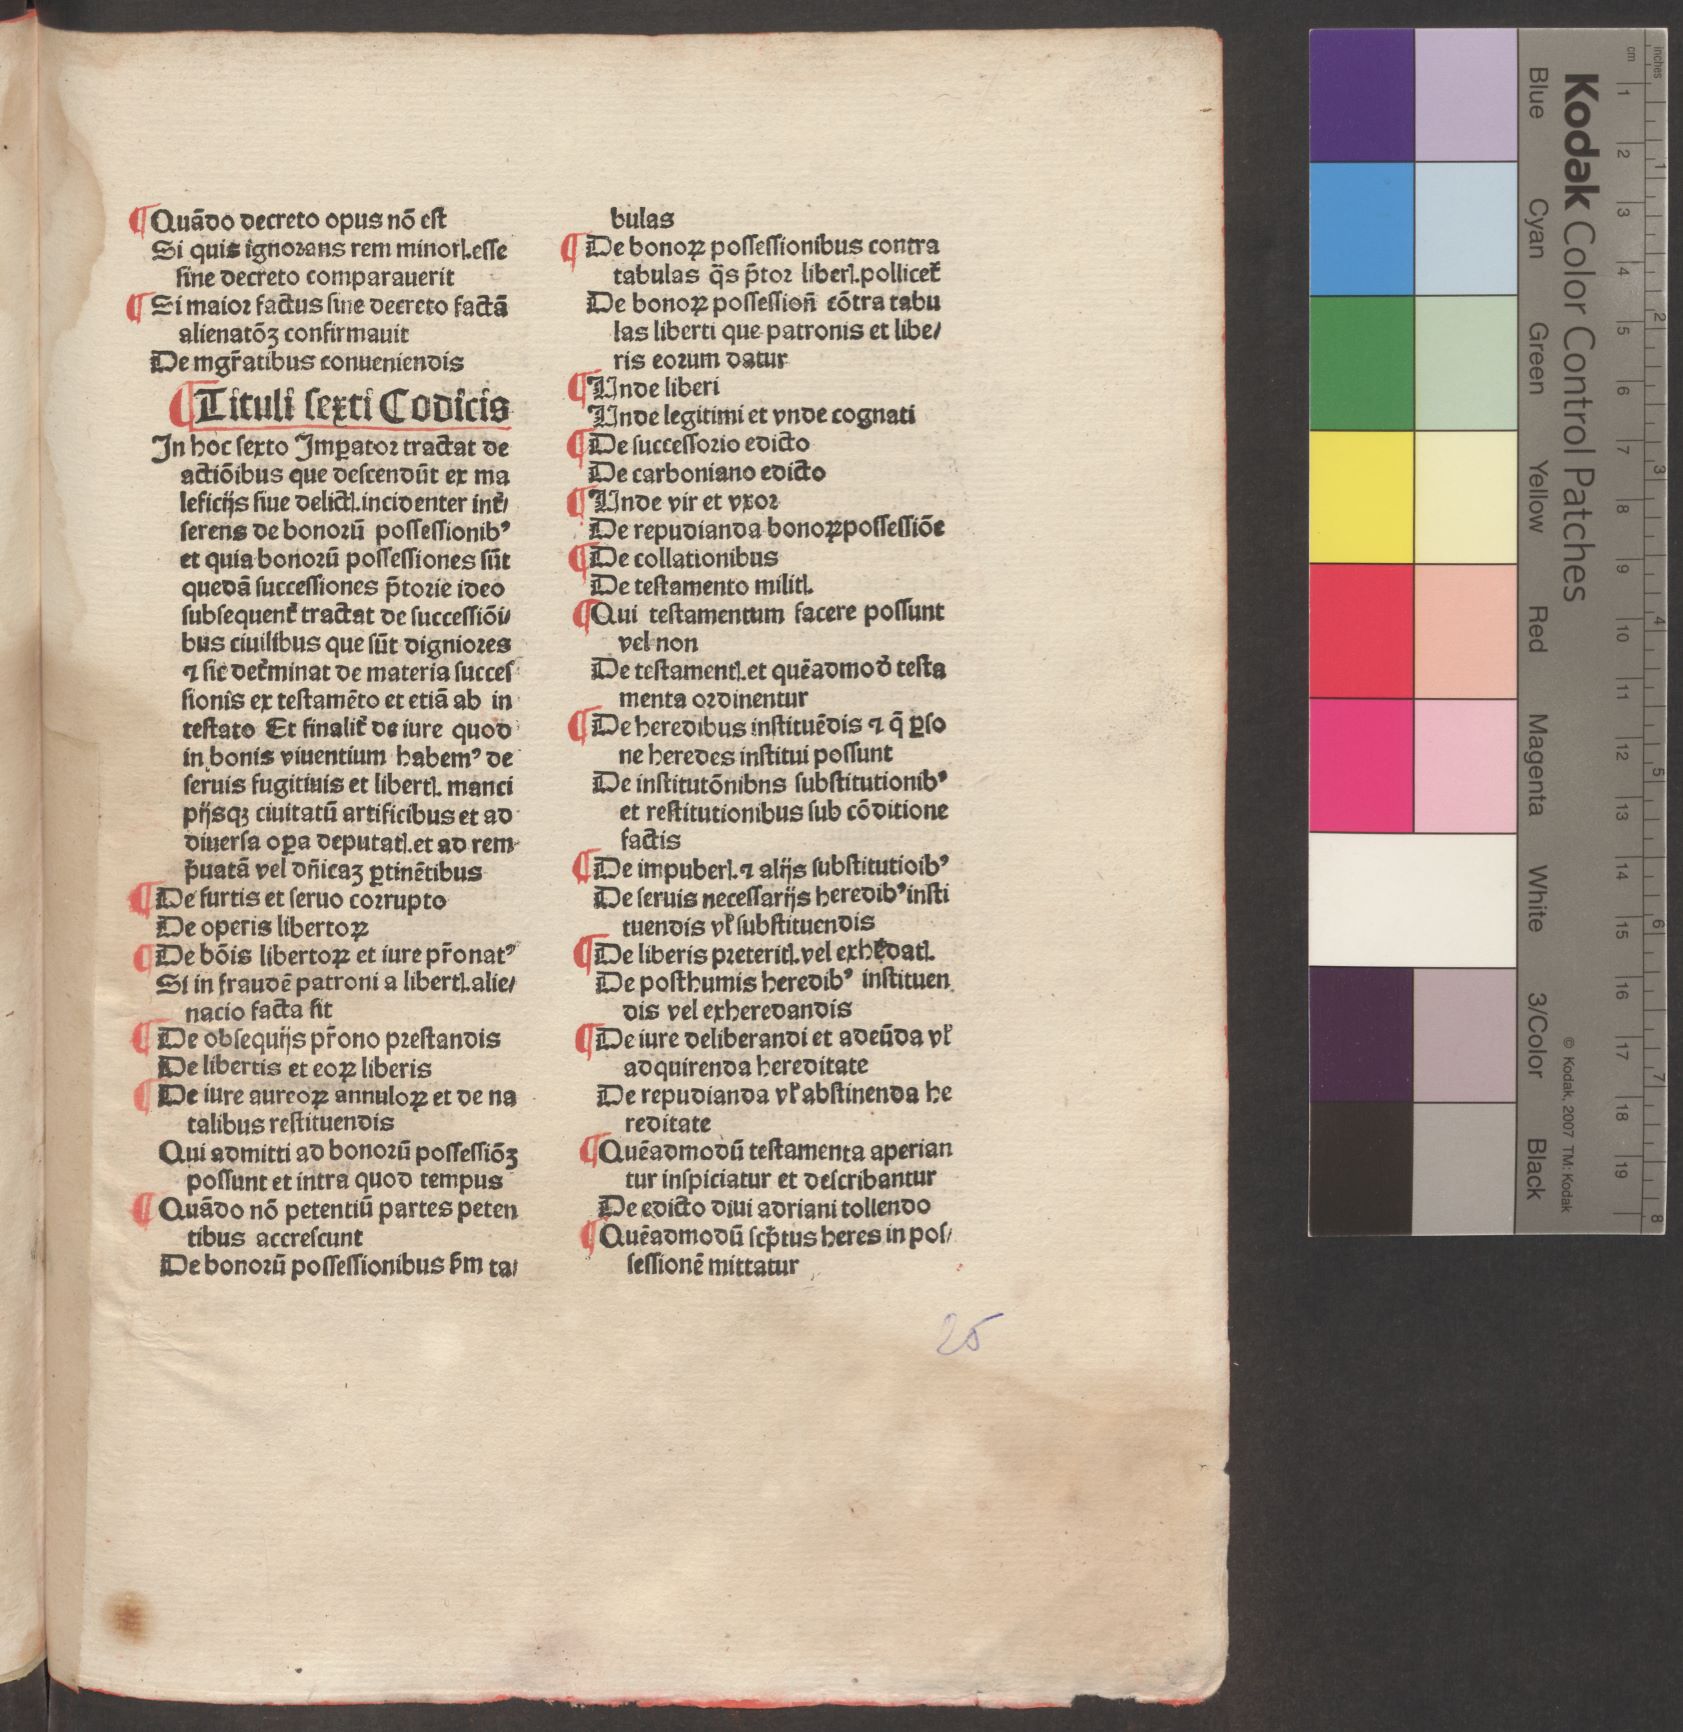 ¶ Quãdo decreto opus nõ est
Si quis ignorans rem minorꝭ.esse
sine decreto comparauerit
¶ Si maior factus sine decreto factã
alienatõꝫ confirmauit
De mgr̃atibus conueniendis
¶ Tituli sexti Codicis
In hoc sexto Imꝑator tractat de
actiõibus que descendũt ex ma
leficijs siue delictꝭ.incidenter int̃/
serens de bonorũ possessionibꝰ
et quia bonorũ possessiones sũt
quedã successiones p̃torie ideo
subsequent̃ tractat de successiõi/
bus ciuilibus que sũt digniores
⁊ sic det̃minat de materia succes
sionis ex testamẽto et etiã ab in
testato Et finalit̃ de iure quod
in bonis viuentium habemꝰ de
seruis fugitiuis et libertꝭ. manci
pijsqꝫ ciuitatũ artificibus et ad
diuersa oꝑa deputatꝭ.et ad rem
p̃uatã vel dñicaꝫ ꝑtinẽtibus
¶ De furtis et seruo corrupto
De operis libertoꝝ
¶ De bõis libertoꝝ et iure pr̃onatꝰ
Si in fraudẽ patroni a libertꝭ.alie/
nacio facta sit
¶ De obsequijs pr̃ono prestandis
De libertis et eoꝝ liberis
¶ De iure aureoꝝ annuloꝝ et de na
talibus restituendis
Qui admitti ad bonorũ possessiõꝫ
possunt et intra quod tempus
¶ Quãdo nõ petentiũ partes peten
tibus accrescunt
De bonorũ possessionibus s̃m ta/
bulas
¶ De bonoꝝ possessionibus contra
tabulas q̃s p̃tor liberꝭ.pollicet̃
De bonoꝝ possessioñ cõtra tabu
las liberti que patronis et libe/
ris eorum datur
¶ Unde liberi
Unde legitimi et vnde cognati
¶ De successorio edicto
De carboniano edicto
¶ Unde vir et vxor
De repudianda bonoꝝpossessiõe
¶ De collationibus
De testamento militꝭ.
¶ Qui testamentum facere possunt
vel non
De testamentꝭ.et quẽadmod̃ testa
menta ordinentur
¶ De heredibus instituẽdis ⁊ q̃ ꝑso
ne heredes institui possunt
De institutõnibns substitutionibꝰ
et restitutionibus sub cõditione
factis
¶ De impuberꝭ.⁊ alijs substitutioibꝰ
De seruis necessarijs heredibꝰinsti
tuendis vl̃ substituendis
¶ De liberis preteritꝭ.vel exhẽdatꝭ.
De posthumis heredibꝰ instituen
dis vel exheredandis
¶ De iure deliberandi et adeũda vl̃
adquirenda hereditate
De repudianda vl̃ abstinenda he
reditate
¶ Quẽadmodũ testamenta aperian
tur inspiciatur et describantur
De edicto diui adriani tollendo
¶ Quẽadmodũ scp̃tus heres in pos/
sessionẽ mittatur
25
Kodak Color Control Patches
Blue Cyan Green Yellow Red Magenta White 3/Color Black
© Kodak, 2007 TM: Kodak
cm 1 2 3 4 5 6 7 8 9 10 11 12 13 14 15 16 17 18 19
inches 1 2 3 4 5 6 7 8